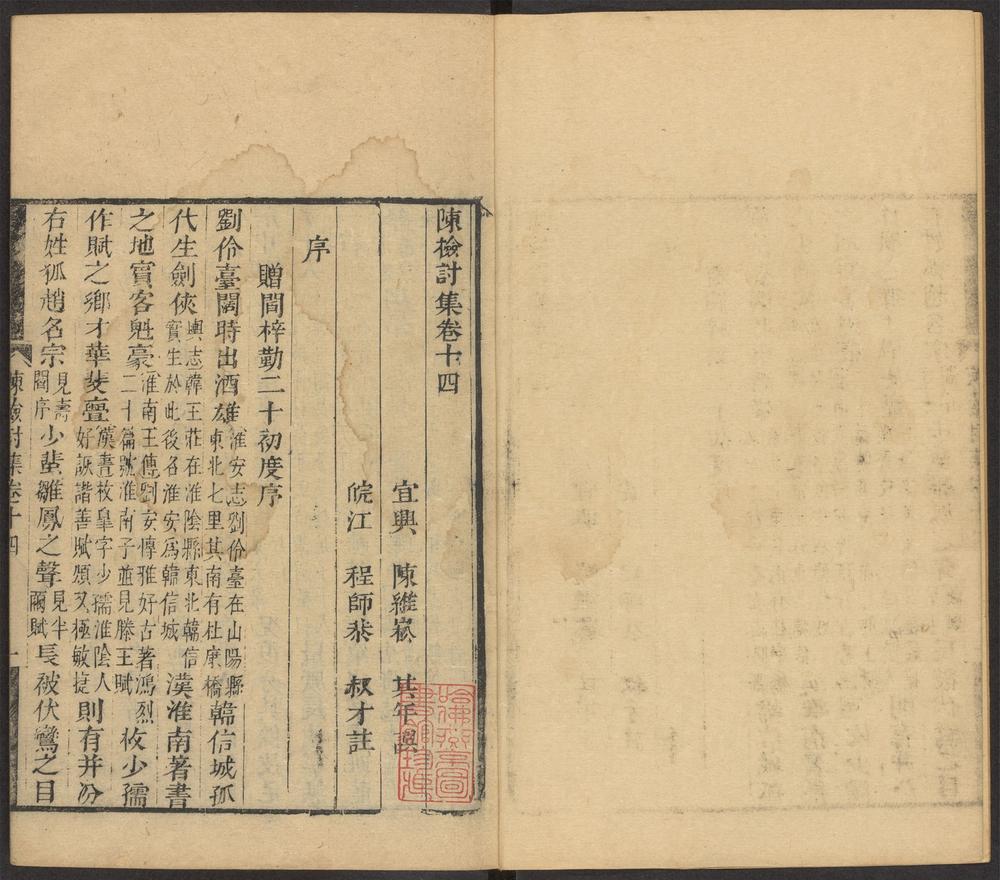 陳檢討集卷十四
宜興 陳維崧 其年譔
皖江 程師恭 叔才註
序
贈閻梓勤二十初度序
劉伶臺闊時出酒雄淮安志劉伶臺在山陽縣東北七里其南有杜康橋韓信城孤
代生劍俠輿志韓王莊在淮陰縣東北韓信實生於此後名淮安爲韓信城漢淮南著書
之地賓客魁豪淮南王傳劉安慱雅好古著鴻烈二十篇號淮南子並見滕王賦枚少孺
作賦之鄉才華斐亹漢書枚臯字少孺淮陰人好詼諧善賦頌又極敏捷則有并汾
右姓狐趙名宗見壽閻序少蜚雛鳳之聲見半繭賦長被伏鸞之目
陳檢討集卷十四 一
哈佛燕京圖書館珍藏